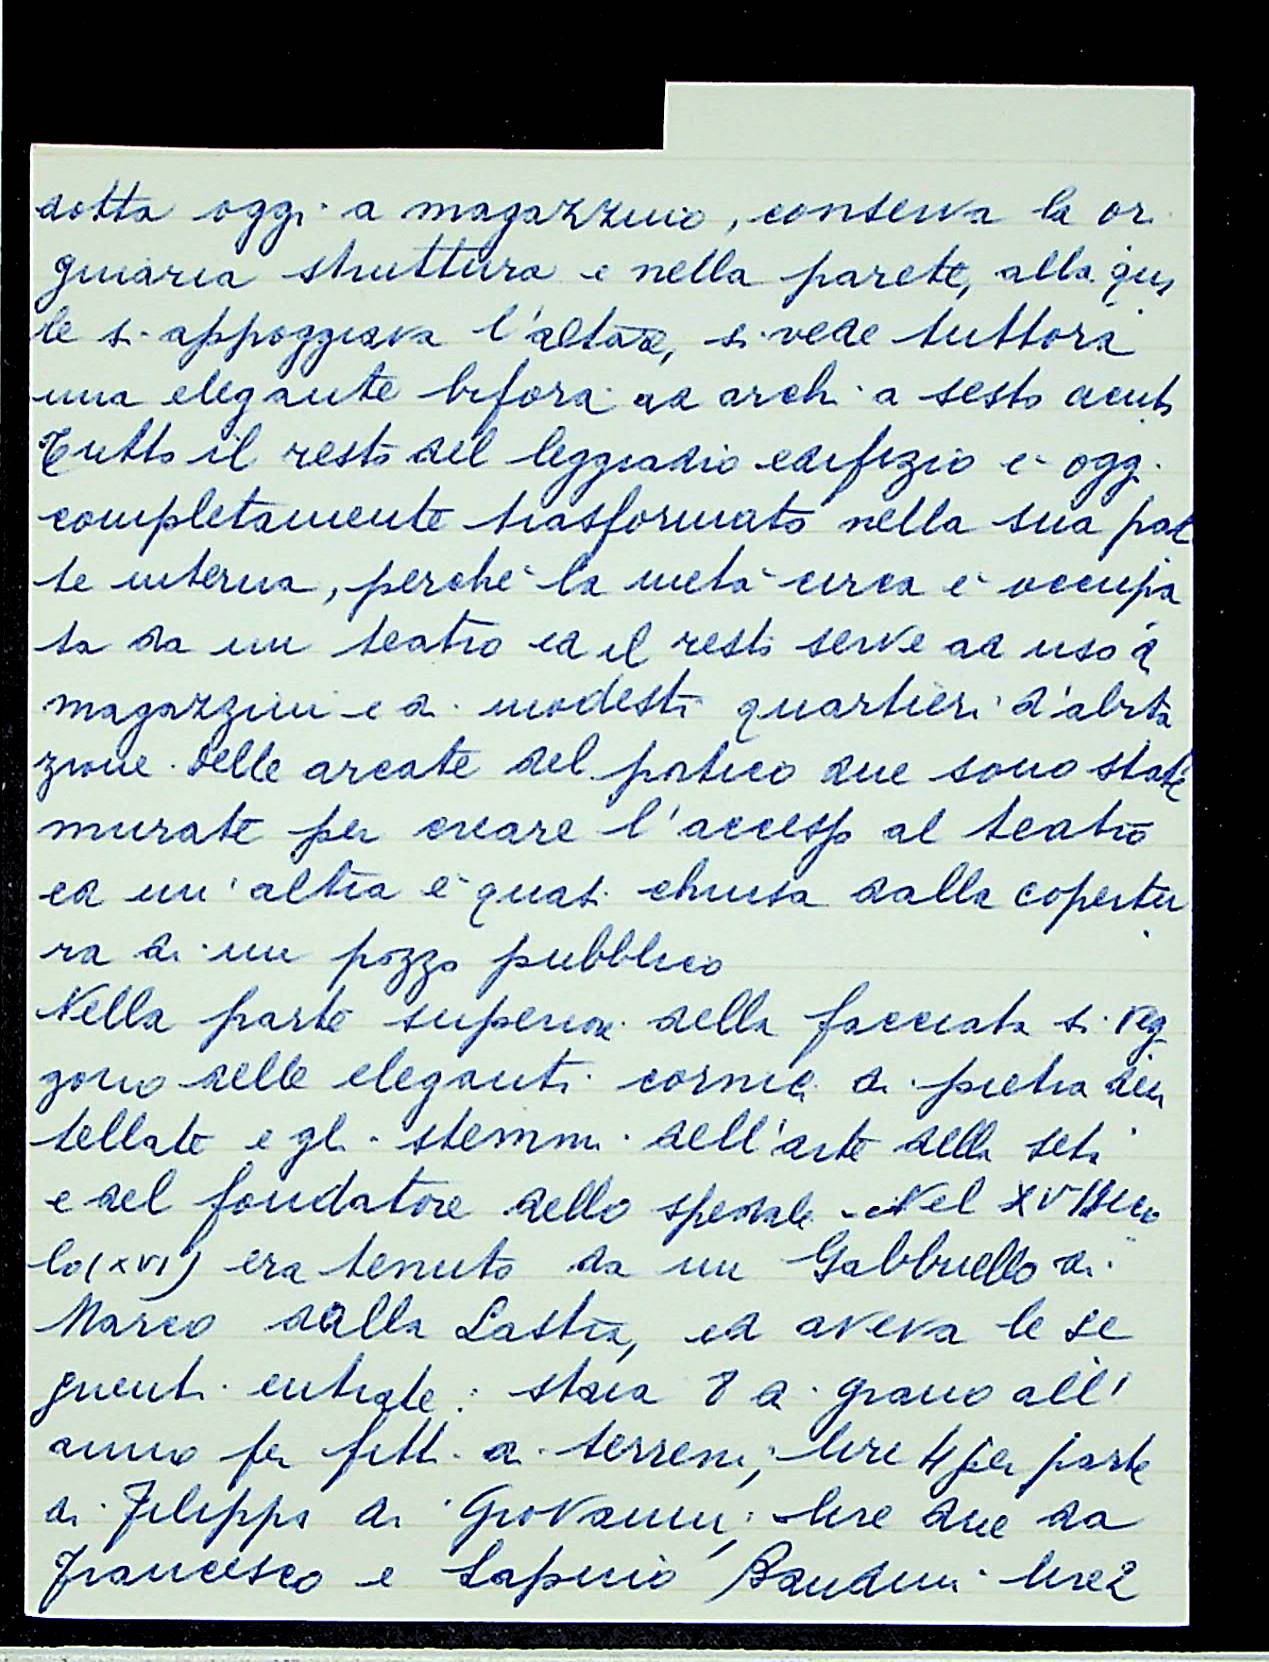 dotta oggi a magazzino, conserva la ori
ginaria struttura e nella parete, alla qua
le si appoggiava l'altare, si vede tuttora
una elegante bifora ad archi a sesto acuto
Tutto il resto del leggiadro edifizio è oggi
completamente trasformato nella sua par
te interna, perchè la metà circa è occupa
ta da un teatro ed il resto serve ad uso di
magazzini e di modesti quartieri d'abita
zione. Delle arcate del portico due sono state
murate per creare l'accesso al teatro
ed un'altra è quasi chiusa dalla copertu
ra di un pozzo pubblico
Nella parte superiore della facciata si veg
gono delle eleganti cornici di pietra den
tellate e gli stemmi dell'arte della seta
e del fondatore dello spedale. Nel XVI seco
lo (XVI) era tenuto da un Gabbriello di
Marco dalla Lastra, ed aveva le se
guenti entrate: staia 8 di grano all'
anno per fitti di terreni; lire 4 per parte
di Filippo di Giovanni; lire due da
Francesco e Lapuccio Bandini lire 2